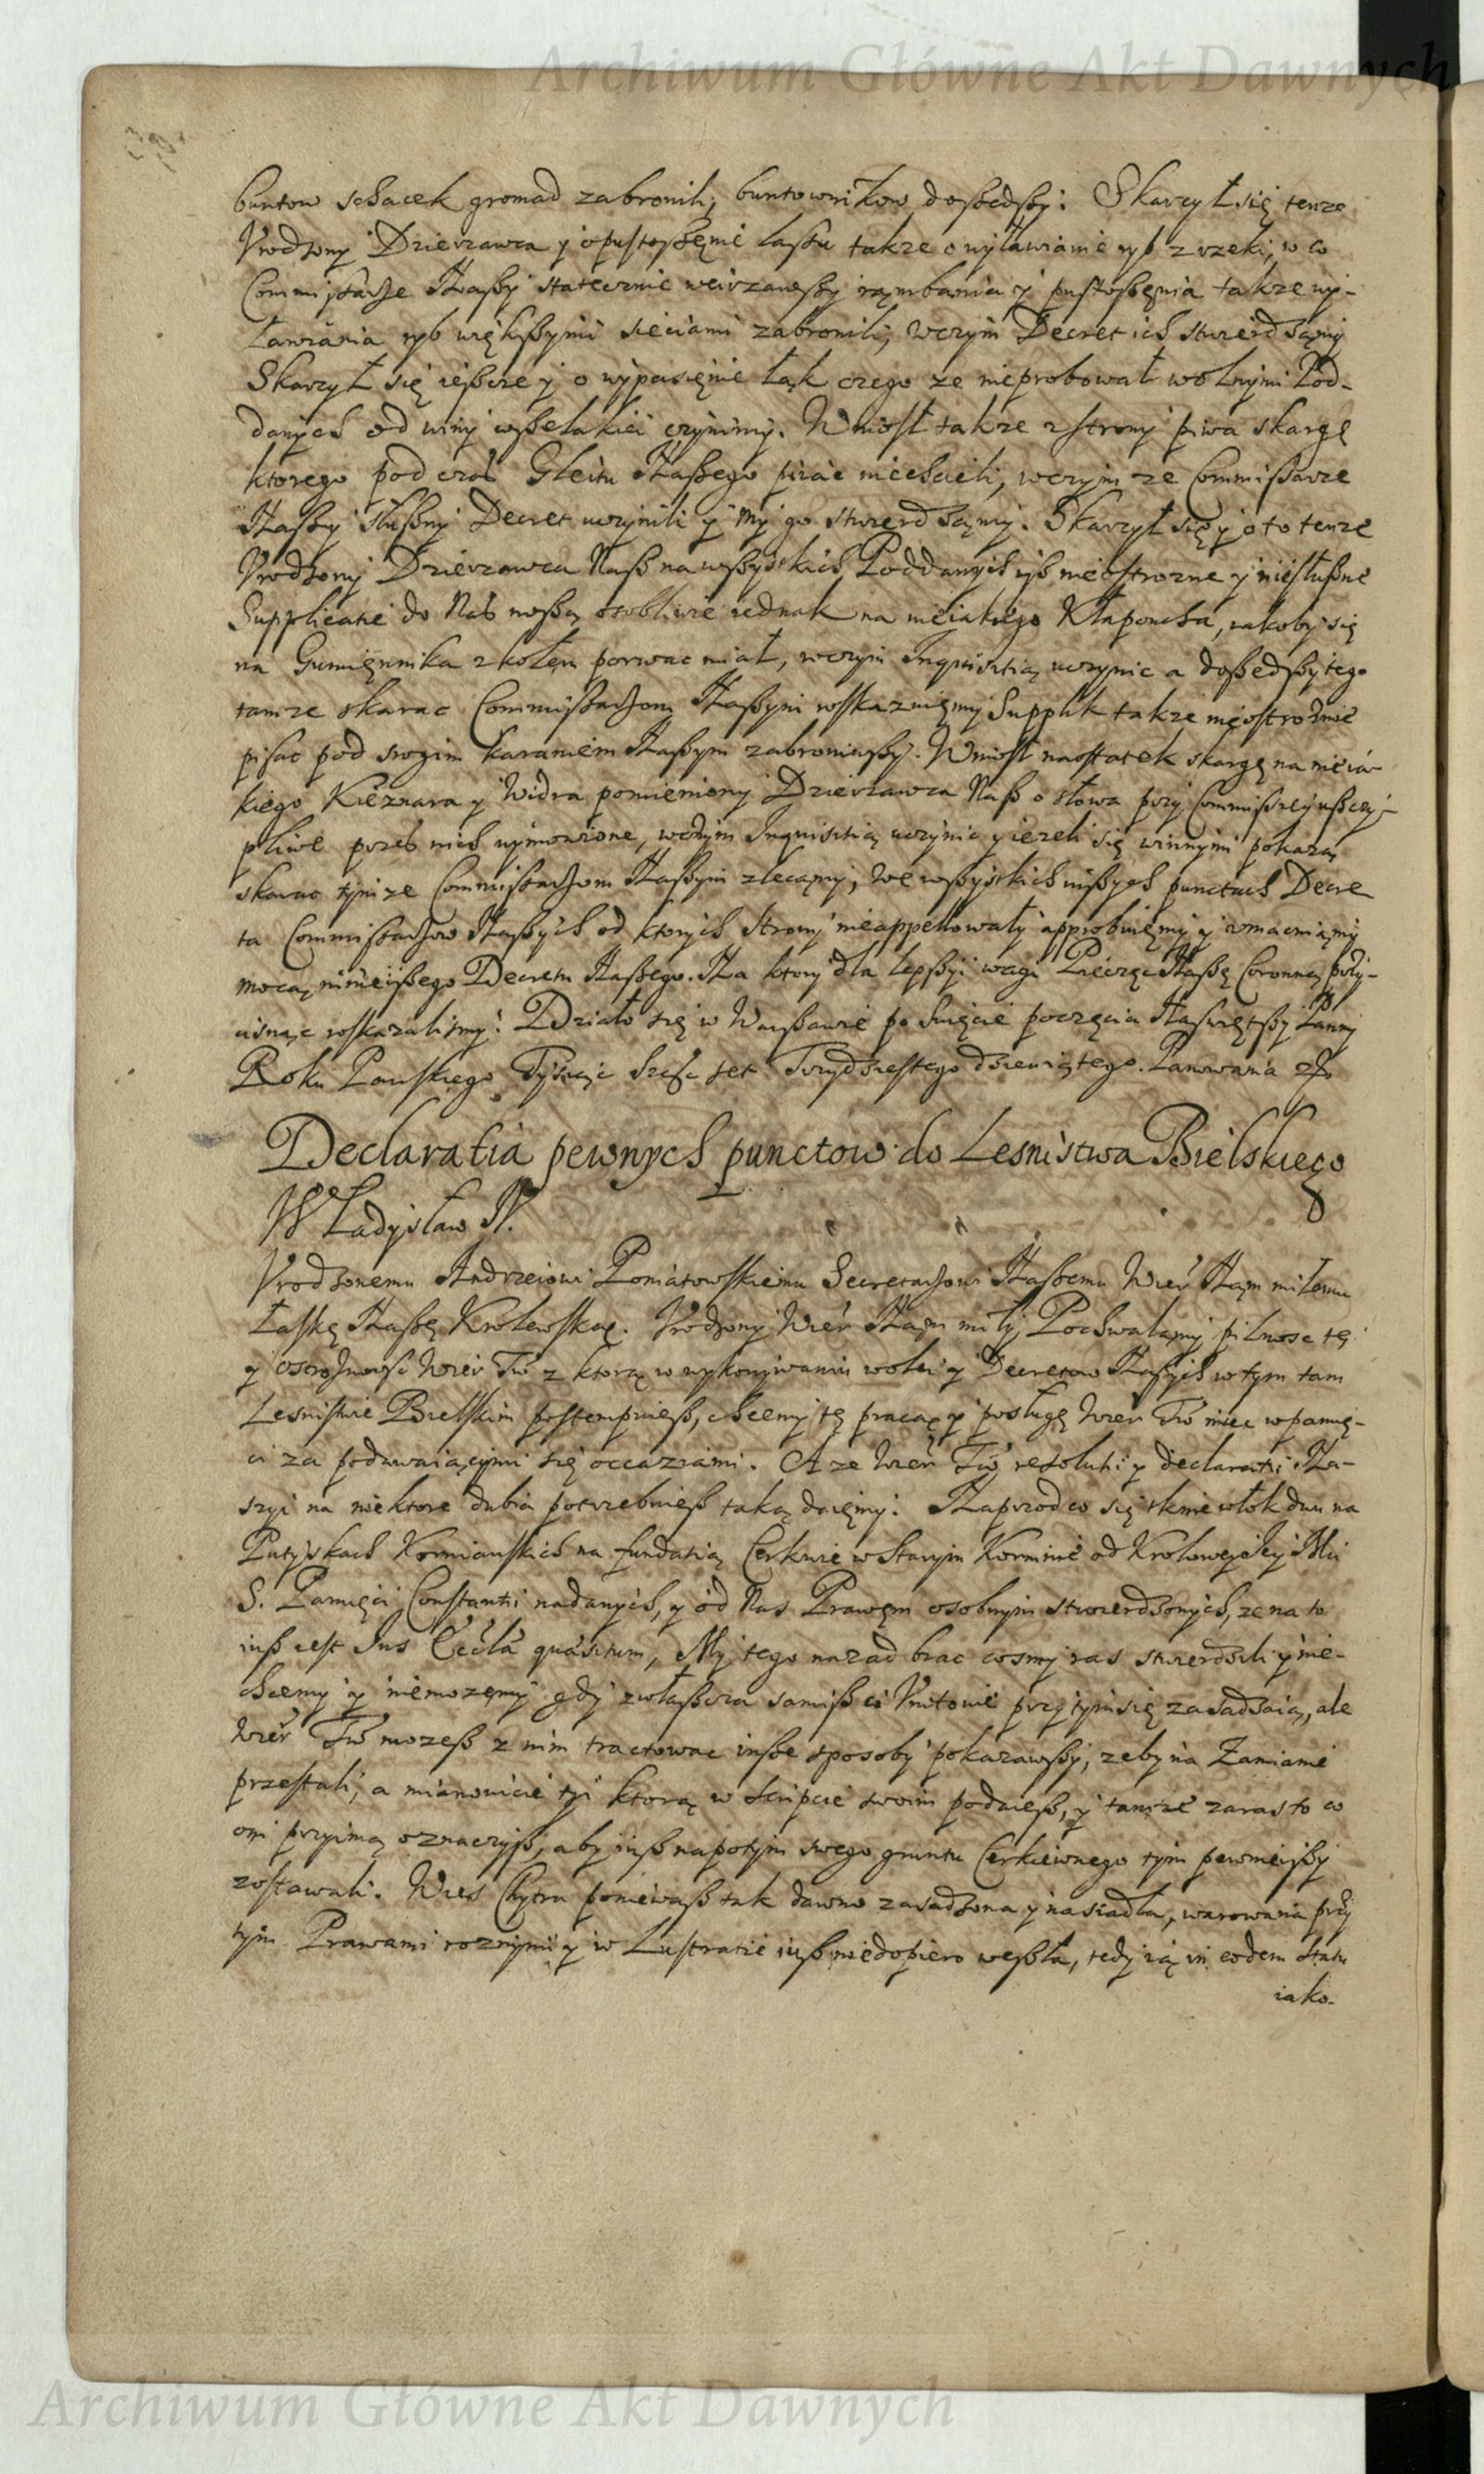 Archiwum Główne Akt Dawnych
buntow schacek gromad zabronili, buntownikow doszedszy. Skarzył się tenze
Vrodzony Dzierzawca y o pustoszęnie lassu takze o wyławianie ryb z rzeki, w co
Commissarze Naszy statecznie weirzawszy rąmbania y pustoszęnia takze wy-
ławiania ryb większymi sieciami zabronili, wczym Decret ich stwierdzamy
Skarzył się ieszcze y o wypasięnie łąk czego ze nieprobował wolnymi Pod-
danych od winy wszelakiei czynimy. Wniosł takze z strony piwa skargę
ktorego pod czas Gleitu Naszego pirać niechcieli, wczym ze Commissarze
Naszy słuszny Decret uczynili y my go stwierdzamy. Skarzył się y o to tenze
Vrodzony Dzierzawca Nasz na wszystkich Poddanych iż nieostrozne y niesłuszne
Supplicatie do Nas noszą osobliwie iednak na nieiakiego Kłapoucha, iakoby się
na Gumiennika z kołem porwac miał, wczym Inquisitią uczynic a doszedszy tego
tamze skarac Commissarzom Naszym wskazuięmy Supplik takze nieostroznie
pisac pod srogim karaniem Naszym zabroniwszy. Wniosł naostatek skargę na nieia-
kiego Kieznara y Widra pomieniony Dzierzawca Nasz o słowa przy Commissiey uszczy-
pliwe przes nich wymowione, wczym Inquisitią uczynic y iezeli się winnymi pokazą
skarac tymze Commissarzom Naszym zlecamy, We wszystkich inszych punctach Decre
ta Commissarzow Naszych od ktorych strony nieappellowały approbuięmy y zmacniamy
mocą ninieiszego Decretu Naszego. Na ktory dla lepszyi wagi Pieczęc Naszę Coronną przy-
cisnąc wskazalismy. Działo się w Warszawie po Swięcie poczęcia Naswiętszy Panny
Roku Panskiego Tysiąc szesc set Trzydziestego dziewiątego. Panowania
Declaratia pewnych punctow do Lesnistwa Bielskiego
Władysław IV.
Vrodzonemu Andrzeiowi Poniatowskiemu Secretarzowi Naszemu Wier Nam miłemu
Łaskę Naszę Krolewską. Vrodzony Wier Nam miły, Pochwalamy pilnosc tę
y ostroznosc Wier Tw z ktorą w wykonywaniu woley y Decretow Naszych w tym tam
Lesnistwie Bielskim postempuiesz, chcemy tę pracą y posługę Wier Tw miec w pamię-
ci za podawaiącymi się occaziami. A ze Wier Tw resolutii y declaratii Na-
szyi na niektore dubia potrzebuiesz taką daięmy. Naprzod co się tknie włok dwu na
Putyskach Korniauskich na fundatią Cerkwie w Starym Korninie od Krolowey Jey Mci
S. Pamięci Constantii nadanych, y od Nas Prawem osobnym stwierdzonych, ze na to
iusz iest Jus Eccla quæsitum, My tego nazad brac cosmy raz stwierdzili y nie-
chcemy y niemozęmy gdy zwłaszcza samisz ci Vnitowie przy tym się zasadzaią, ale
Wier Tw mozesz z nim tractowac insze sposoby pokazawszy, zeby na Zamianie
przestali, a mianowicie tyi ktorą w scripcie swoim podaiesz, y tamze zaras to co
oni przyimą oznaczysz, aby iusz napotym swego gruntu Cerkiewnego tym pewnieiszy
zostawali. Wies Chytra poniewasz tak dawno zasadzona y nasiadła, warowana przy
tym Prawami roznymi y w Lustratie iusz niedopiero weszła, tedy ią in eodem statu
iako-
Archiwum Główne Akt Dawnych